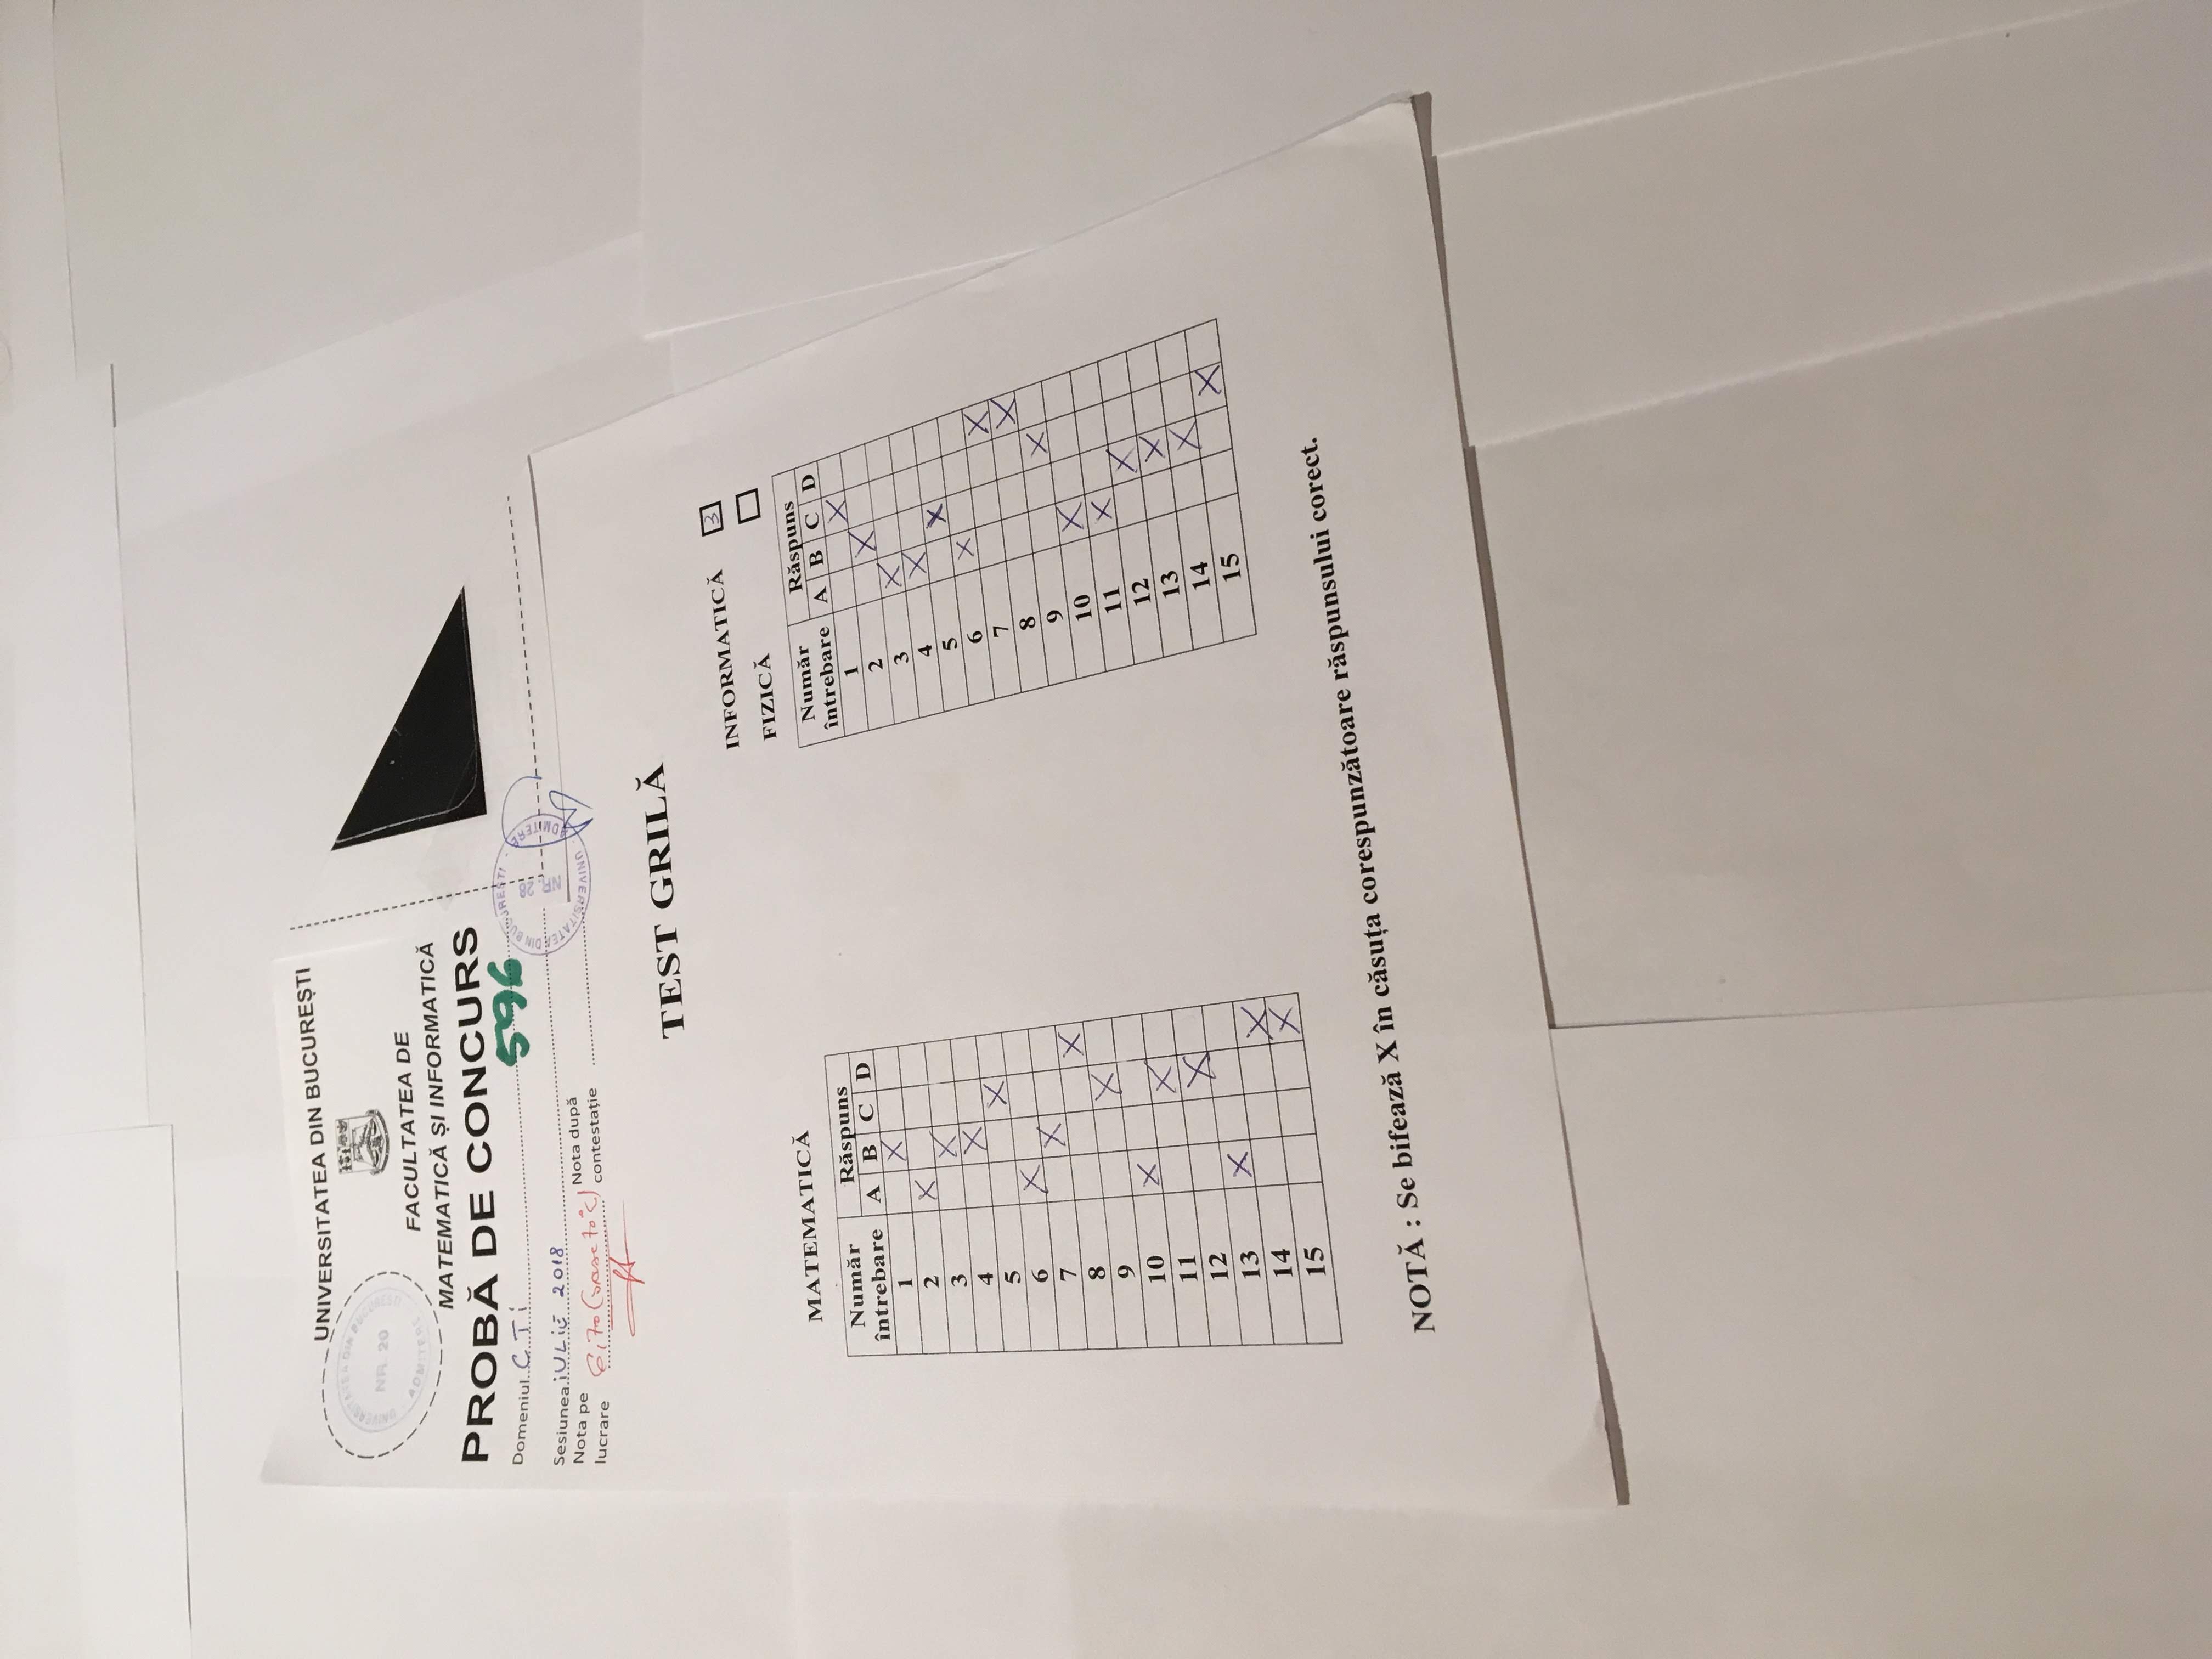 UNIVERSITATEA DIN BUCUREȘTI
UNIVERSITATEA DIN BUCUREȘTI
NR. 20
ADMITERE
FACULTATEA DE
MATEMATICĂ ȘI INFORMATICĂ
PROBĂ DE CONCURS
Domeniul CTI 596
Sesiunea iULIE 2018
Nota pe lucrare 6,70 (șase 70%)
Nota după contestație
UNIVERSITATEA DIN BUCUREȘTI - ADMITERE
NR. 28
TEST GRILĂ
INFORMATICĂ 3
FIZICĂ
MATEMATICĂ
Număr întrebare Răspuns
A B C D
1 X
2 X
3 X
4 X
5 X
6 X
7 X
8 X
9 X
10 X
11 X
12 X
13 X
14 X
15 X
Număr întrebare Răspuns
A B C D
1 X
2 X
3 X
4 X
5 X
6 X
7 X
8 X
9 X
10 X
11 X
12 X
13 X
14 X
15 X
NOTĂ : Se bifează X în căsuța corespunzătoare răspunsului corect.